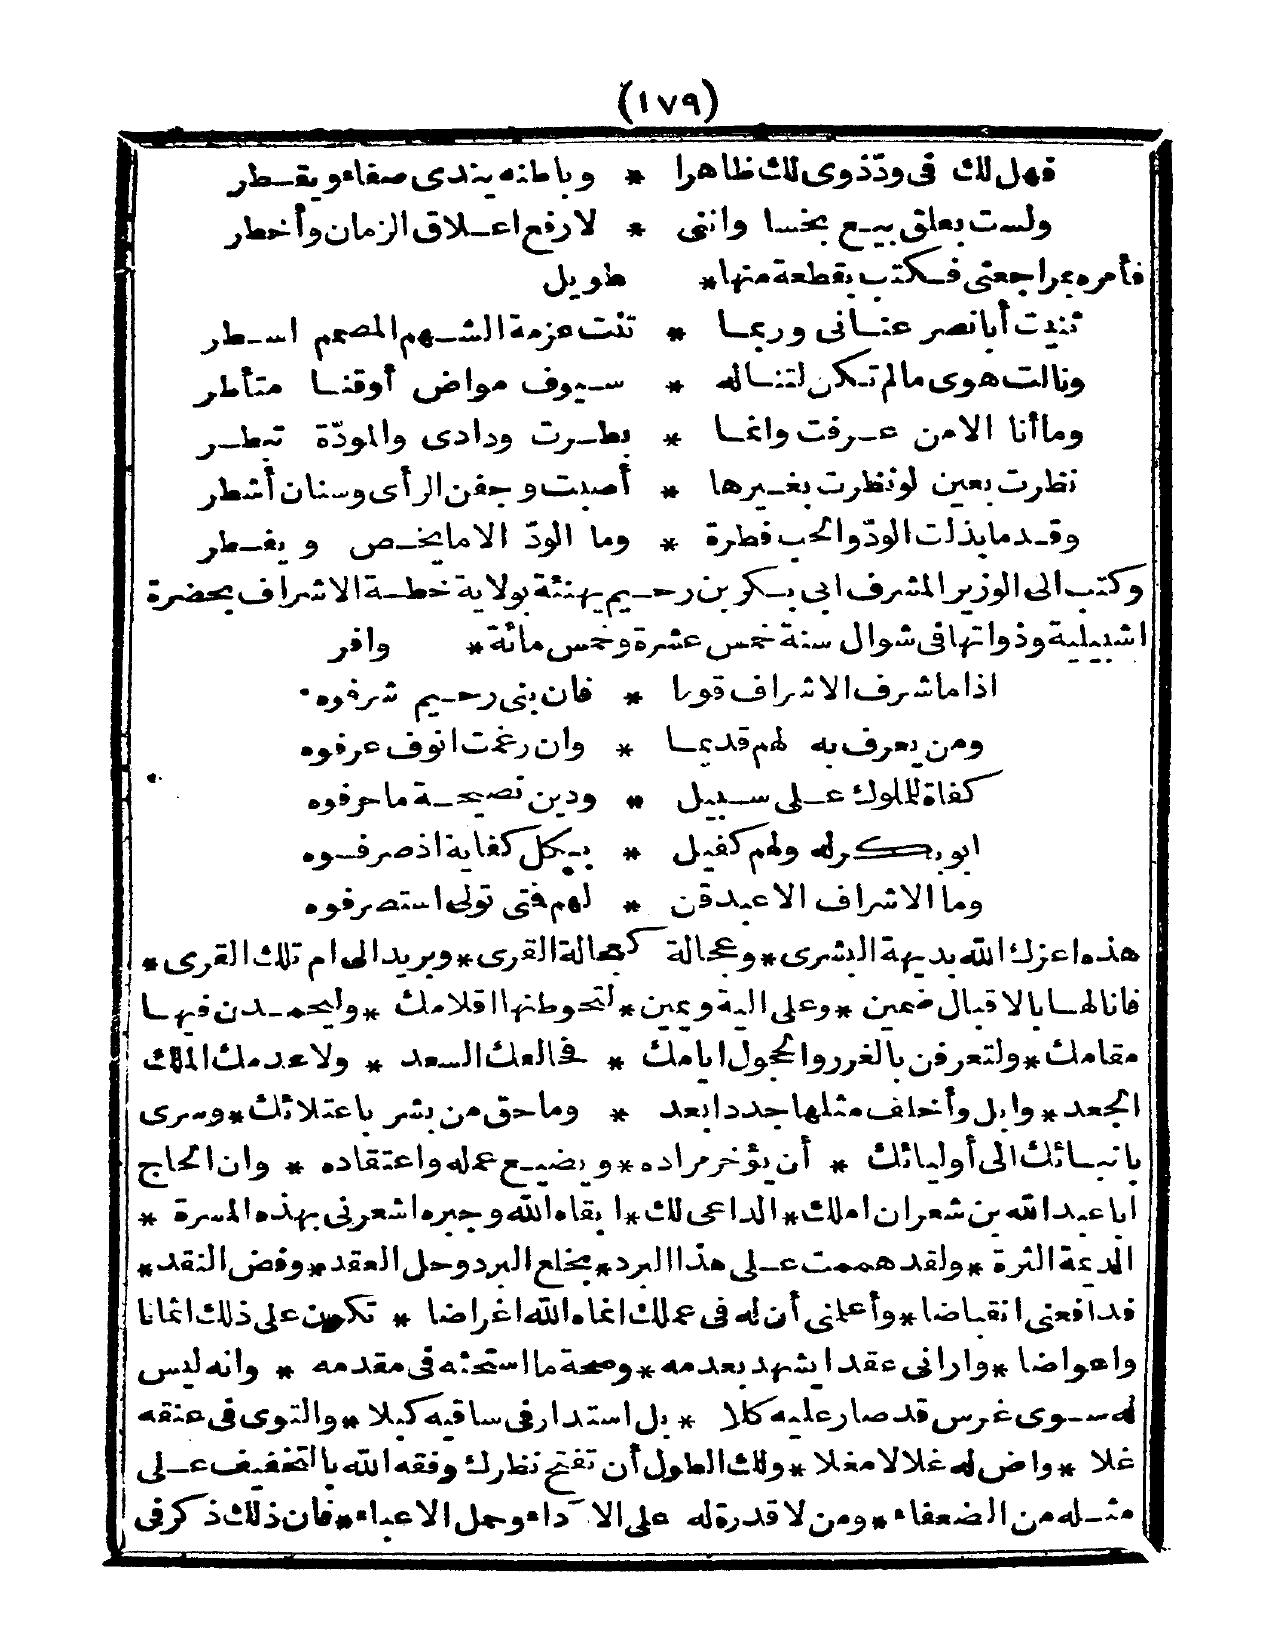 (١٧٩)
فهل لك فى ودّ ذوى لك ظاهرا * وباطنه يندى صفاء ويقطر
ولست بعلق بيع بخسا وانى * لا رفع اعلاق الزمان وأخطر
فأمره بمراجعتى فكتب بقطعة منها * طويل
ثنيت أبا نصر عنانى وربما * ثنت عزمة الشهم المصمم اسطر
ونالت هوى مالم تكن لتناله * سيوف مواض أوقنا متأطر
وما أنا الا من عرفت وانما * بطرت ودادى والمودّة تبطر
نظرت بعين لو نظرت بغيرها * أصبت وجفن الرأى وسنان أشطر
وقدما بذلت الودّ والحب فطرة * وما الودّ الا ما يخص ويفطر
وكتب الى الوزير المشرف ابى بكر بن رحيم يهنئة بولاية خطة الاشراف بحضرة
اشبيلية وذواتها فى شوال سنة خمس عشرة وخمس مائة * وافر
اذا ما شرف الاشراف قوما * فان بنى رحيم شرفوه
ومن يعرف به لهم قديما * وان رغمت انوف عرفوه
كفاة للملوك على سبيل * ودين نصيحة ما حرفوه
ابو بكر له ولهم كفيل * بكل كفاية اذ صرفوه
وما الاشراف الا عبد قن * لهم فتى تولى استصرفوه
هذه اعزك الله بديهة البشرى * وعجالة كعجالة القرى * وبريد الى ام تلك القرى *
فانا لها بالاقبال ضمين * وعلى الية ويمين * لتحوطنها اقلامك * وليحمدن فيها
مقامك * ولتعرفن بالغرر والحجول ايامك * فخالعك السعد * ولا عدمك الملك
الجعد * وابل وأخلف مثلها جددا بعد * وما حق من بشر باعتلائك * وسرى
بانبائك الى أوليائك * أن يؤخر مراده * ويضيع عمله واعتقاده * وان الحاج
ابا عبد الله بن شعران املك * الداعى لك * ابقاه الله وجبره اشعرنى بهذه المسرة *
الدعة الثرة * ولقد هممت على هذا البرد * بخلع البرد وحل العقد * وفض النقد *
فدافعنى انقباضا * وأعلمنى أن له فى عملك انماه الله اغراضا * تكون على ذلك اثمانا
واعواضا * وارانى عقدا يشهد بعدمه * وصحة ما استحثه فى مقدمه * وانه ليس
له سوى غرس قد صار عليه كلا * بل استدار فى ساقيه كبلا * والتوى فى عنقه
غلا * واض له غلالا مغلا * ولك الطول أن تفتح نظرك وفقه الله بالتخفيف على
مثله من الضعفاء * ومن لا قدرة له على الاداء وحمل الاعباء * فان ذلك ذكر فى